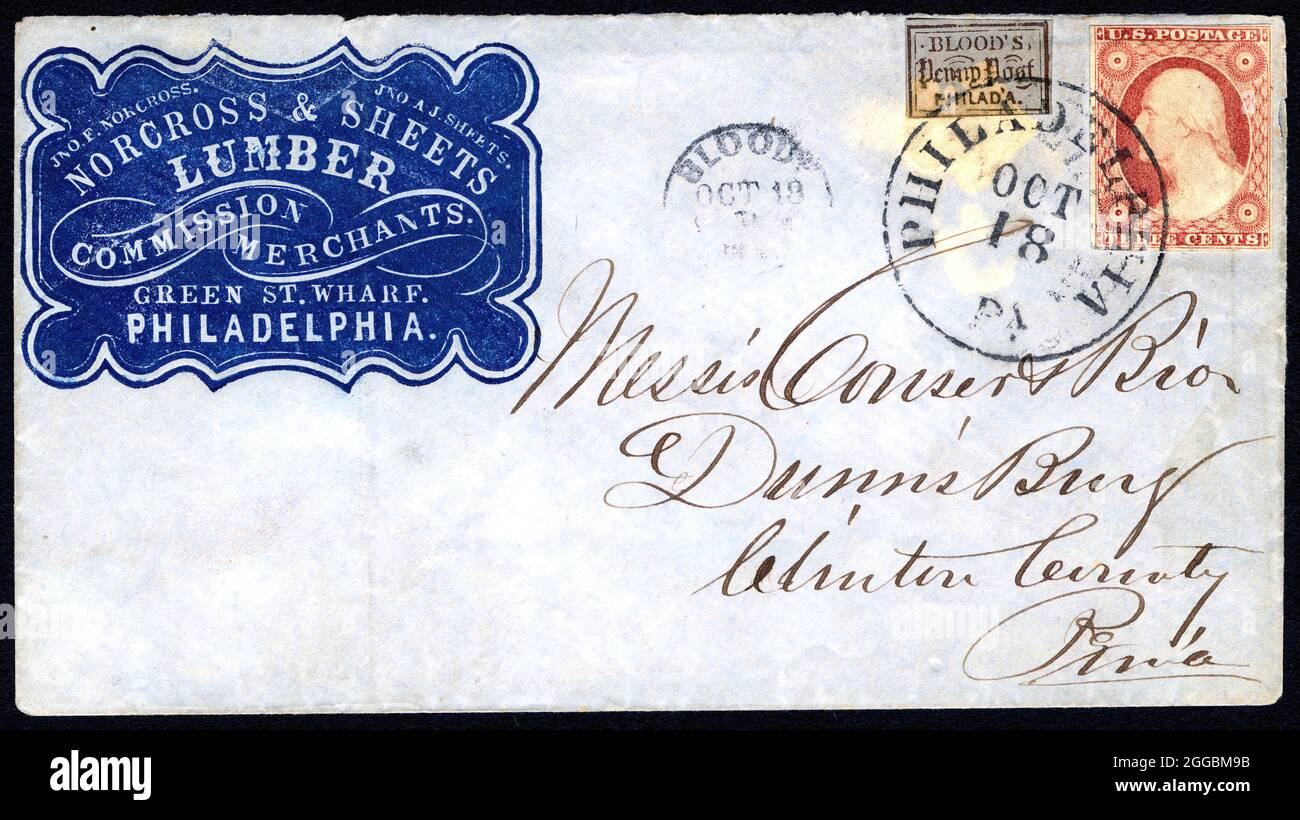 JNO F. NORCROSS.
JNO A. J. SHEETS.
NORCROSS & SHEETS
LUMBER
COMMISSION
MERCHANTS.
GREEN ST. WHARF.
PHILADELPHIA.
BLOOD'S
Penny Post
PHILAD'A.
U.S. POSTAGE
THREE CENTS
BLOOD'S
OCT 18
PHILADELPHIA
OCT
18
PA
Messrs Conser & Bros
Dunns Burg
Clinton County
Penn'a
alamy
Image ID: 2GGBM9B
www.alamy.com